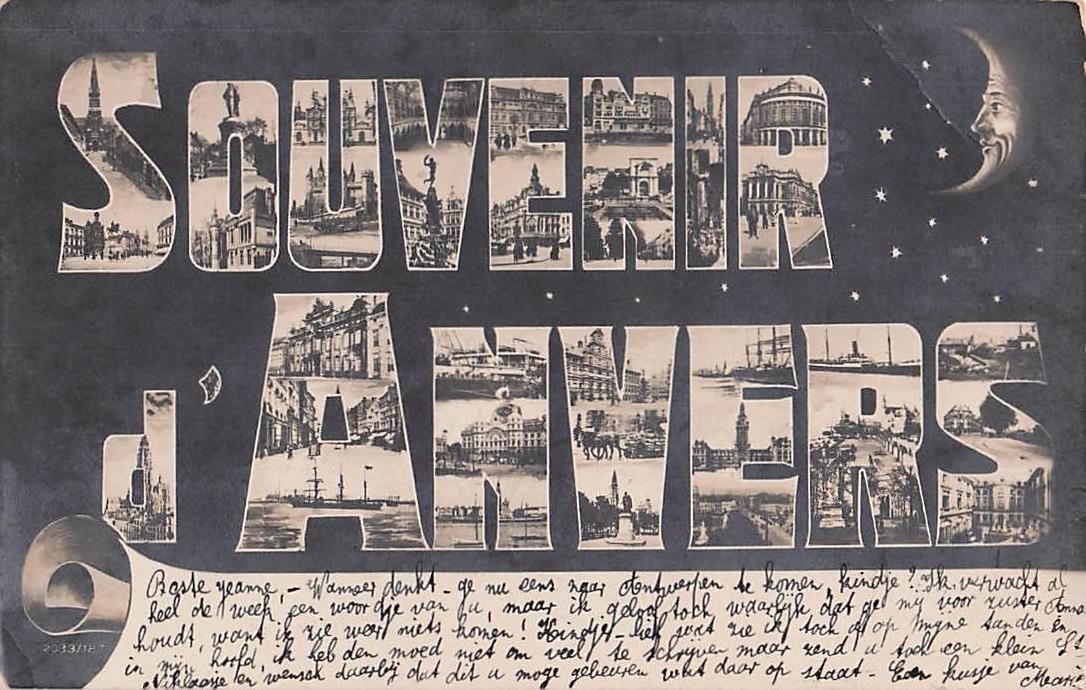 SOUVENIR
d'ANVERS
Beste Jeanne, - Wanneer denkt - ge nu eens naar Antwerpen te komen, kindje? Ik verwacht al
heel de week een woordje van u, maar ik geloof toch waarlijk dat ge mij voor zuster Anna
houdt, want ik zie weer niets komen! Kindje - lief, zie ik toch op mijne tanden en
in mijn hoofd, ik heb den moed niet om veel te schrijven maar zend u toch een klein St
Niklaasje en wensch daarbij dat dit u moge gebeuren wat daar op staat - Een kusje van Marie
2033/187